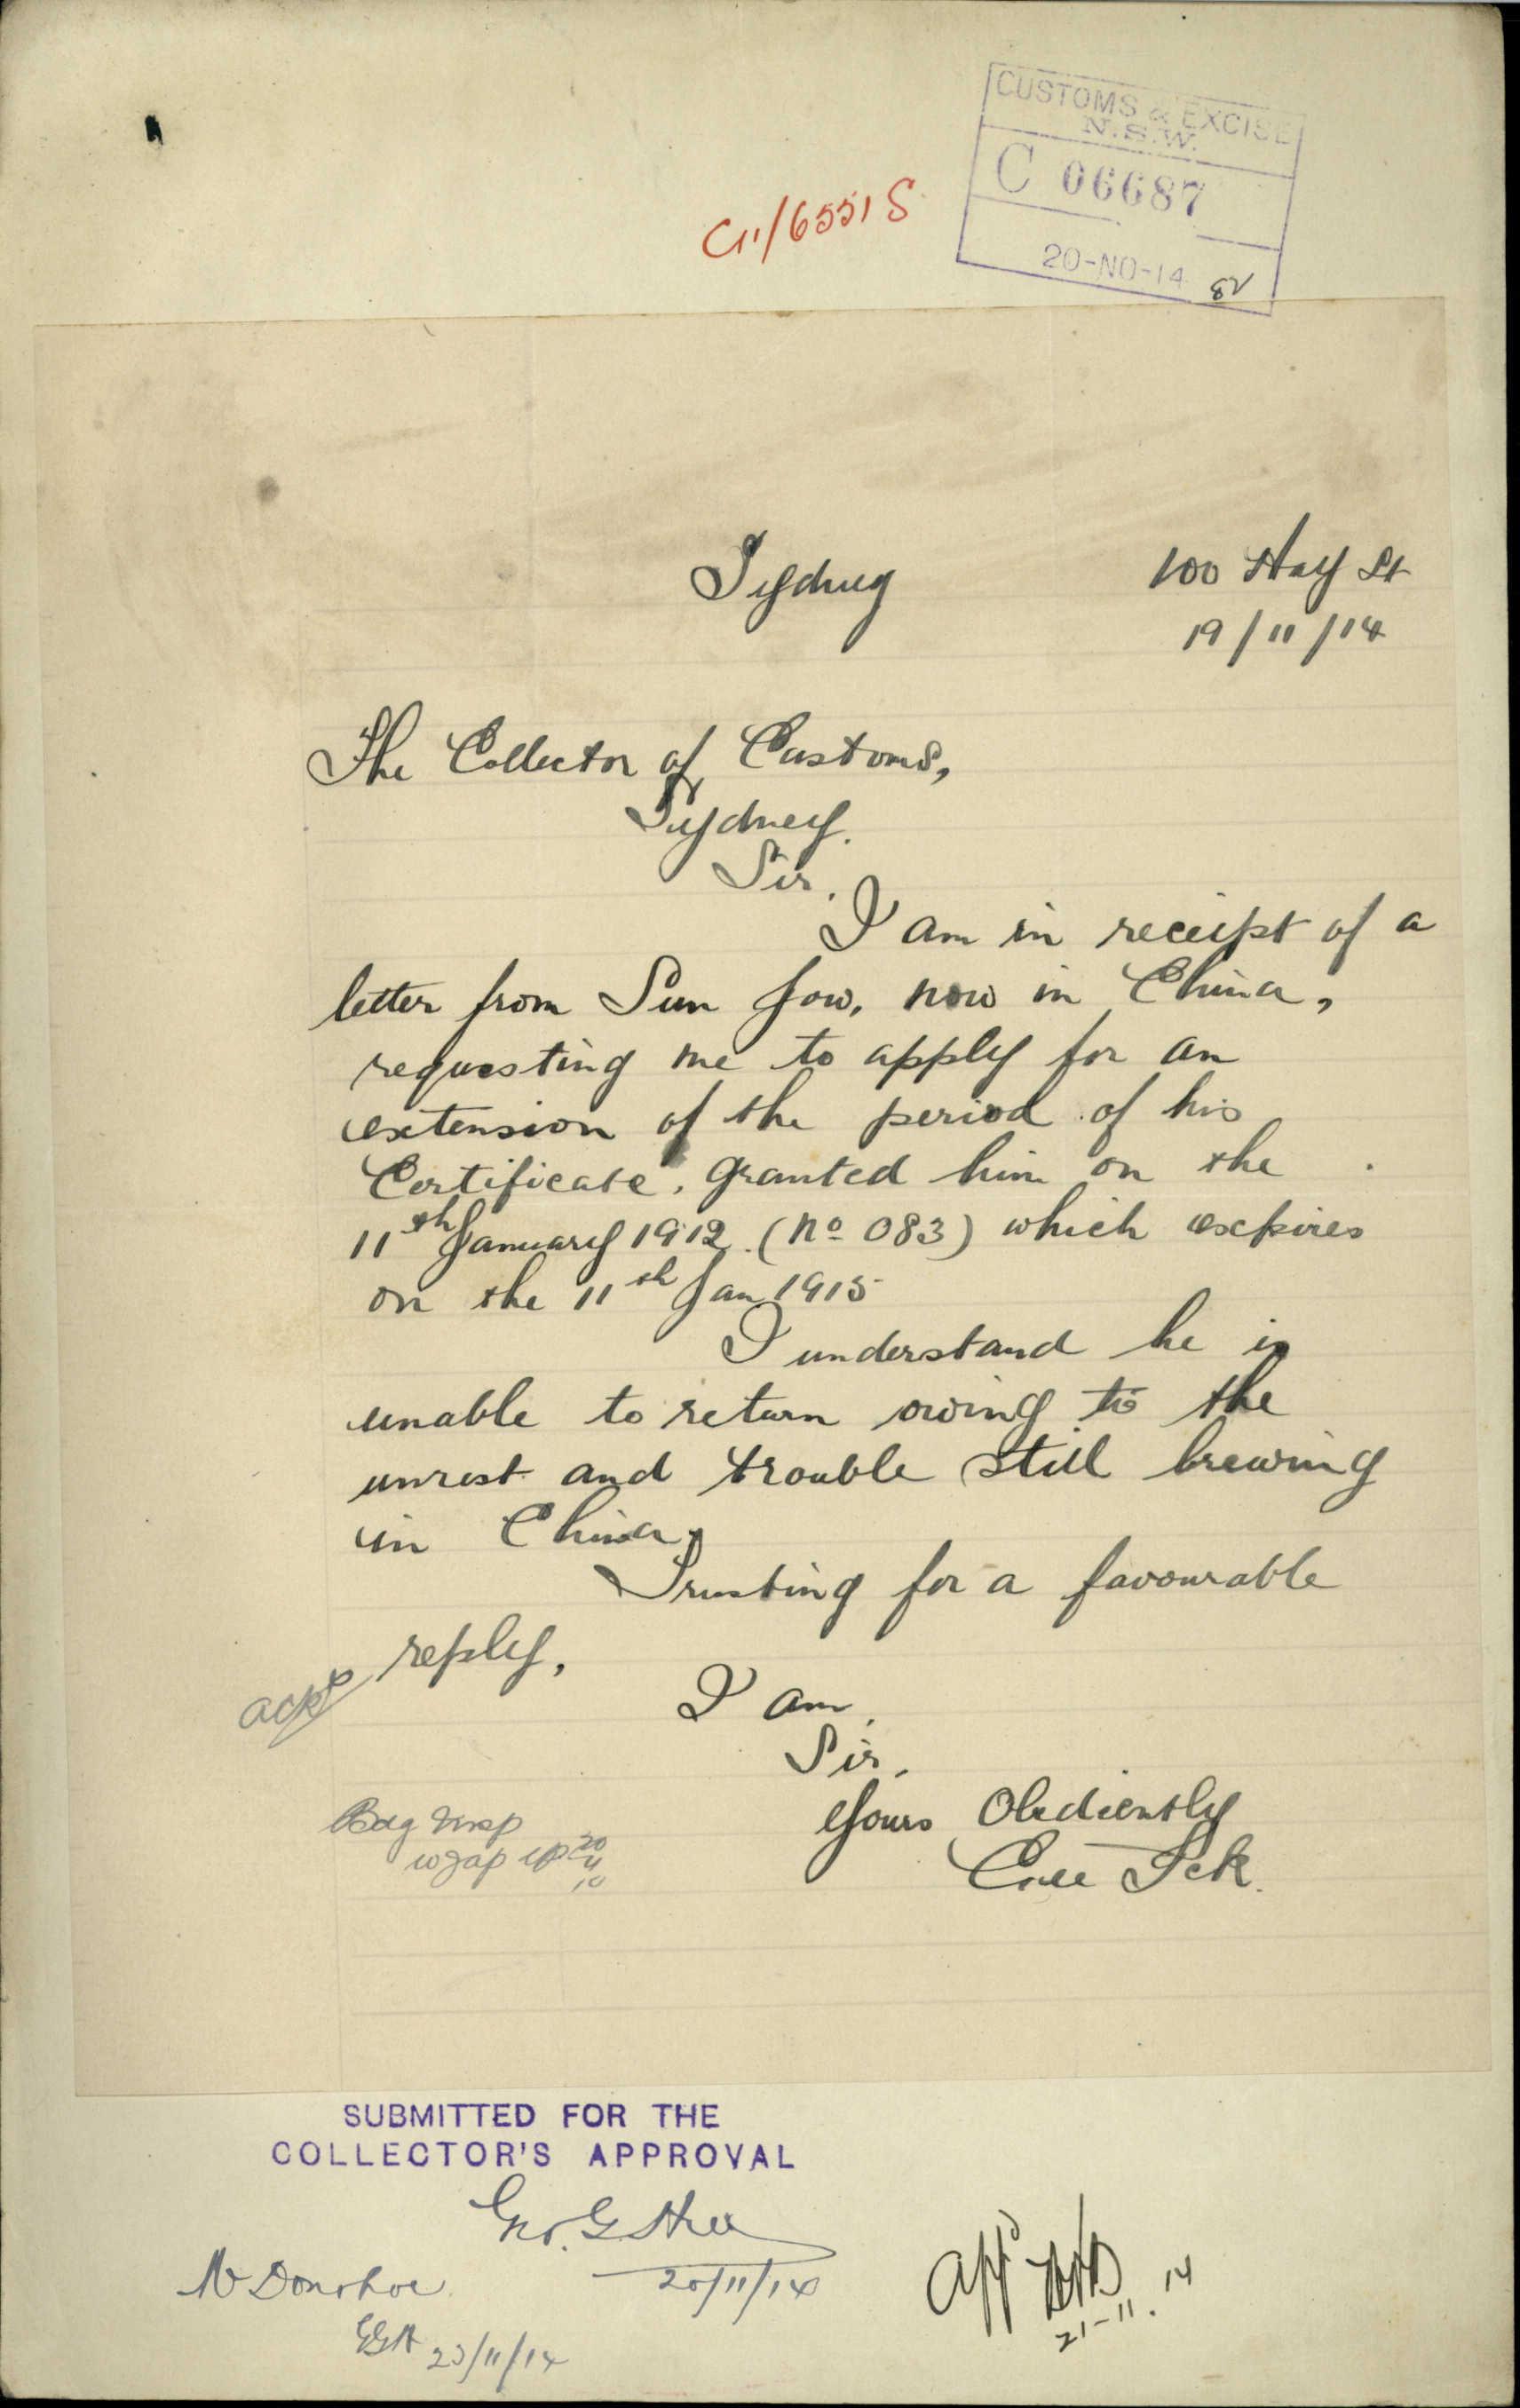 CUSTOMS & EXCISE
N.S.W.
C 06687
20-NO-14
C11/6551 S
Sydney
100 Hay St
19/11/14
The Collector of Customs,
Sydney.
Sir,
I am in receipt of a
letter from Sun Jow, now in China,
requesting me to apply for an
extension of the period of his
Certificate, granted him on the
11th January 1912 (No 083) which expires
on the 11th Jan 1915
I understand he is
unable to return owing to the
unrest and trouble still brewing
in China,
Trusting for a favourable
reply,
ackd
I am,
Sir,
Yours Obediently
Tek.
SUBMITTED FOR THE
COLLECTOR'S APPROVAL
Geo. G.
20/11/14
Mr Donohoe
23/11/14
21-11.14